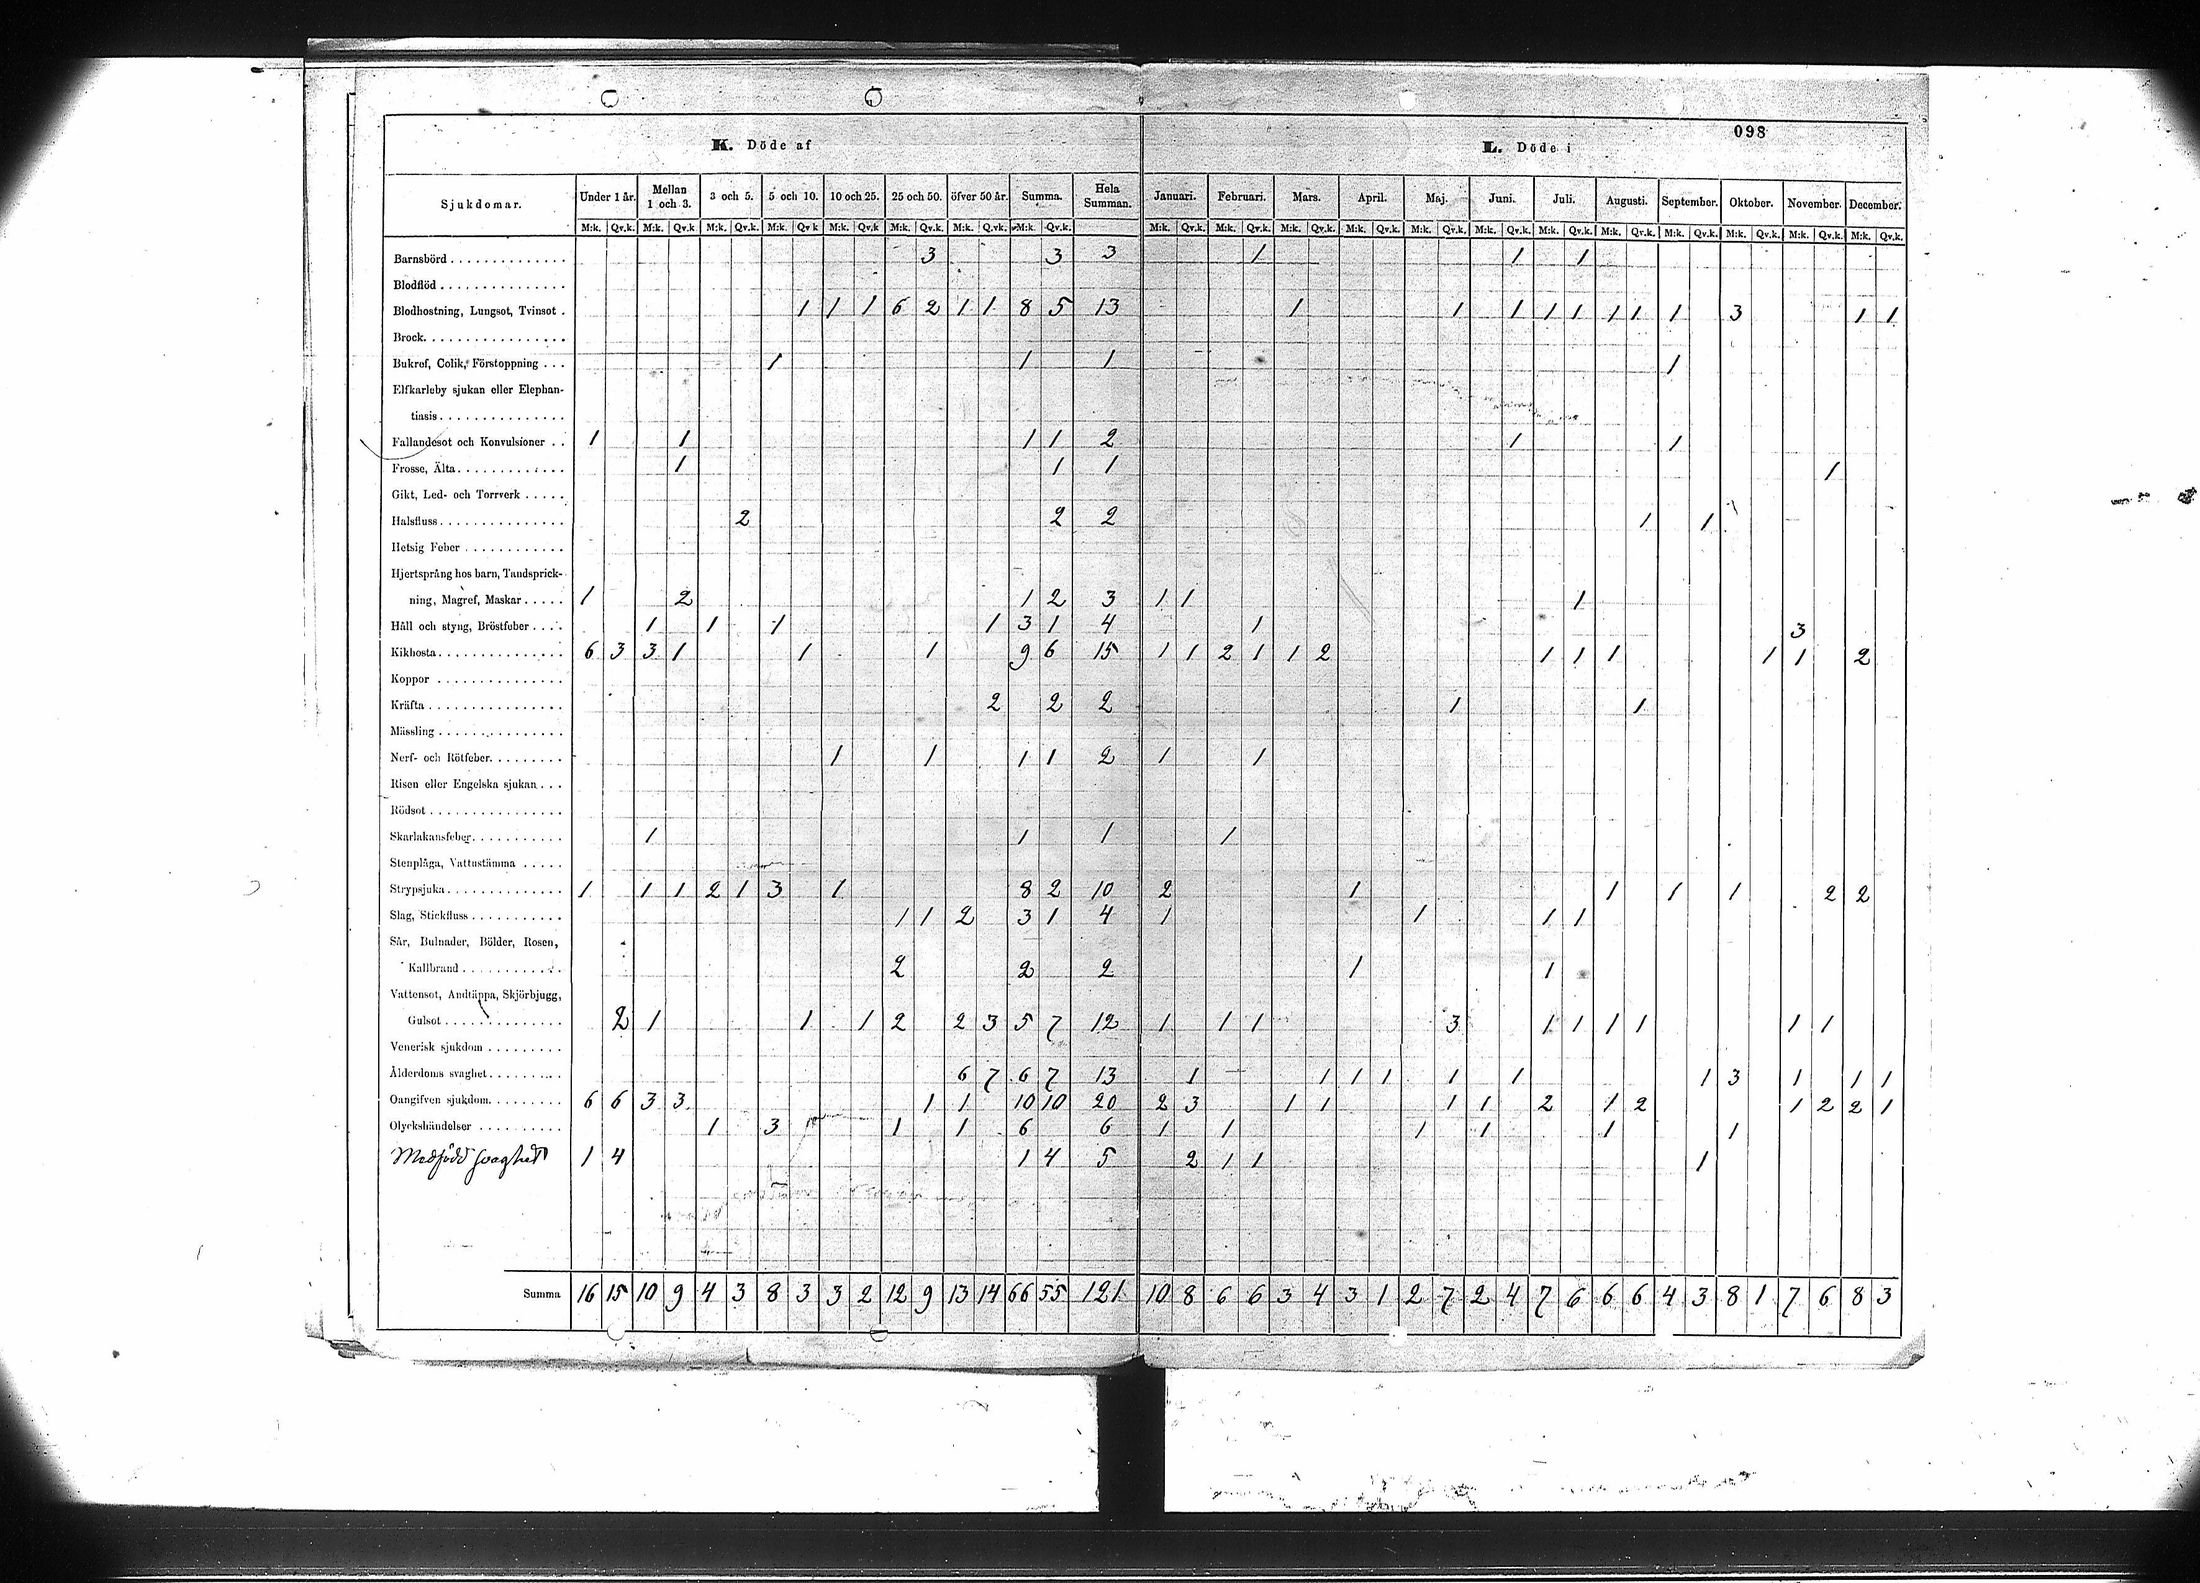 098
K. Döde af L. Döde i
Sjukdomar. Under 1 år. Mellan 1 och 3. 3 och 5. 5 och 10. 10 och 25. 25 och 50. öfver 50 år. Summa. Hela Summan. Januari. Februari. Mars. April. Maj. Juni. Juli. Augusti. September. Oktober. November. December.
M:k. Qv.k. M:k. Qv.k M:k. Qv.k. M:k. Qv.k M:k. Qv.k M:k. Qv.k. M:k. Qv.k. M:k. Qv.k. M:k. Qv.k. M:k. Qv.k. M:k. Qv.k. M:k. Qv.k. M:k. Qv.k. M:k. Qv.k. M:k. Qv.k. M:k. Qv.k. M:k. Qv.k. M:k. Qv.k. M:k. Qv.k. M:k. Qv.k.
Barnsbörd 3 3 3 1 1 1
Blodflöd
Blodhostning, Lungsot, Tvinsot 1 1 1 6 2 1 1 8 5 13 1 1 1 1 1 1 1 1 3 1 1
Brock
Bukref, Colik, Förstoppning 1 1 1 1
Elfkarleby sjukan eller Elephan-
tiasis
Fallandesot och Konvulsioner 1 1 1 1 2 1 1
Frosse, Älta 1 1 1 1
Gikt, Led- och Torrverk
Halsfluss 2 2 2 1 1
Hetsig Feber
Hjertsprång hos barn, Tandsprick-
ning, Magref, Maskar 1 2 1 2 3 1 1 1
Håll och styng, Bröstfeber 1 1 1 1 3 1 4 1 3
Kikhosta 6 3 3 1 1 1 9 6 15 1 1 2 1 1 2 1 1 1 1 1 2
Koppor
Kräfta 2 2 2 1 1
Mässling
Nerf- och Rötfeber 1 1 1 1 2 1 1
Risen eller Engelska sjukan
Rödsot
Skarlakansfeber 1 1 1 1
Stenplåga, Vattustämma
Strypsjuka 1 1 1 2 1 3 1 8 2 10 2 1 1 1 1 2 2
Slag, Stickfluss 1 1 2 3 1 4 1 1 1 1
Sår, Bulnader, Bölder, Rosen,
Kallbrand 2 2 2 1 1
Vattensot, Andtäppa, Skjörbjugg,
Gulsot 2 1 1 1 2 2 3 5 7 12 1 1 1 3 1 1 1 1 1 1
Venerisk sjukdom
Ålderdoms svaghet 6 7 6 7 13 1 1 1 1 1 1 1 3 1 1 1
Oangifven sjukdom 6 6 3 3 1 1 10 10 20 2 3 1 1 1 1 2 1 2 1 2 2 1
Olyckshändelser 1 3 1 1 6 6 1 1 1 1 1 1
Medfödd svaghet 1 4 1 4 5 2 1 1 1
Summa 16 15 10 9 4 3 8 3 3 2 12 9 13 14 66 55 121 10 8 6 6 3 4 3 1 2 7 2 4 7 6 6 6 4 3 8 1 7 6 8 3